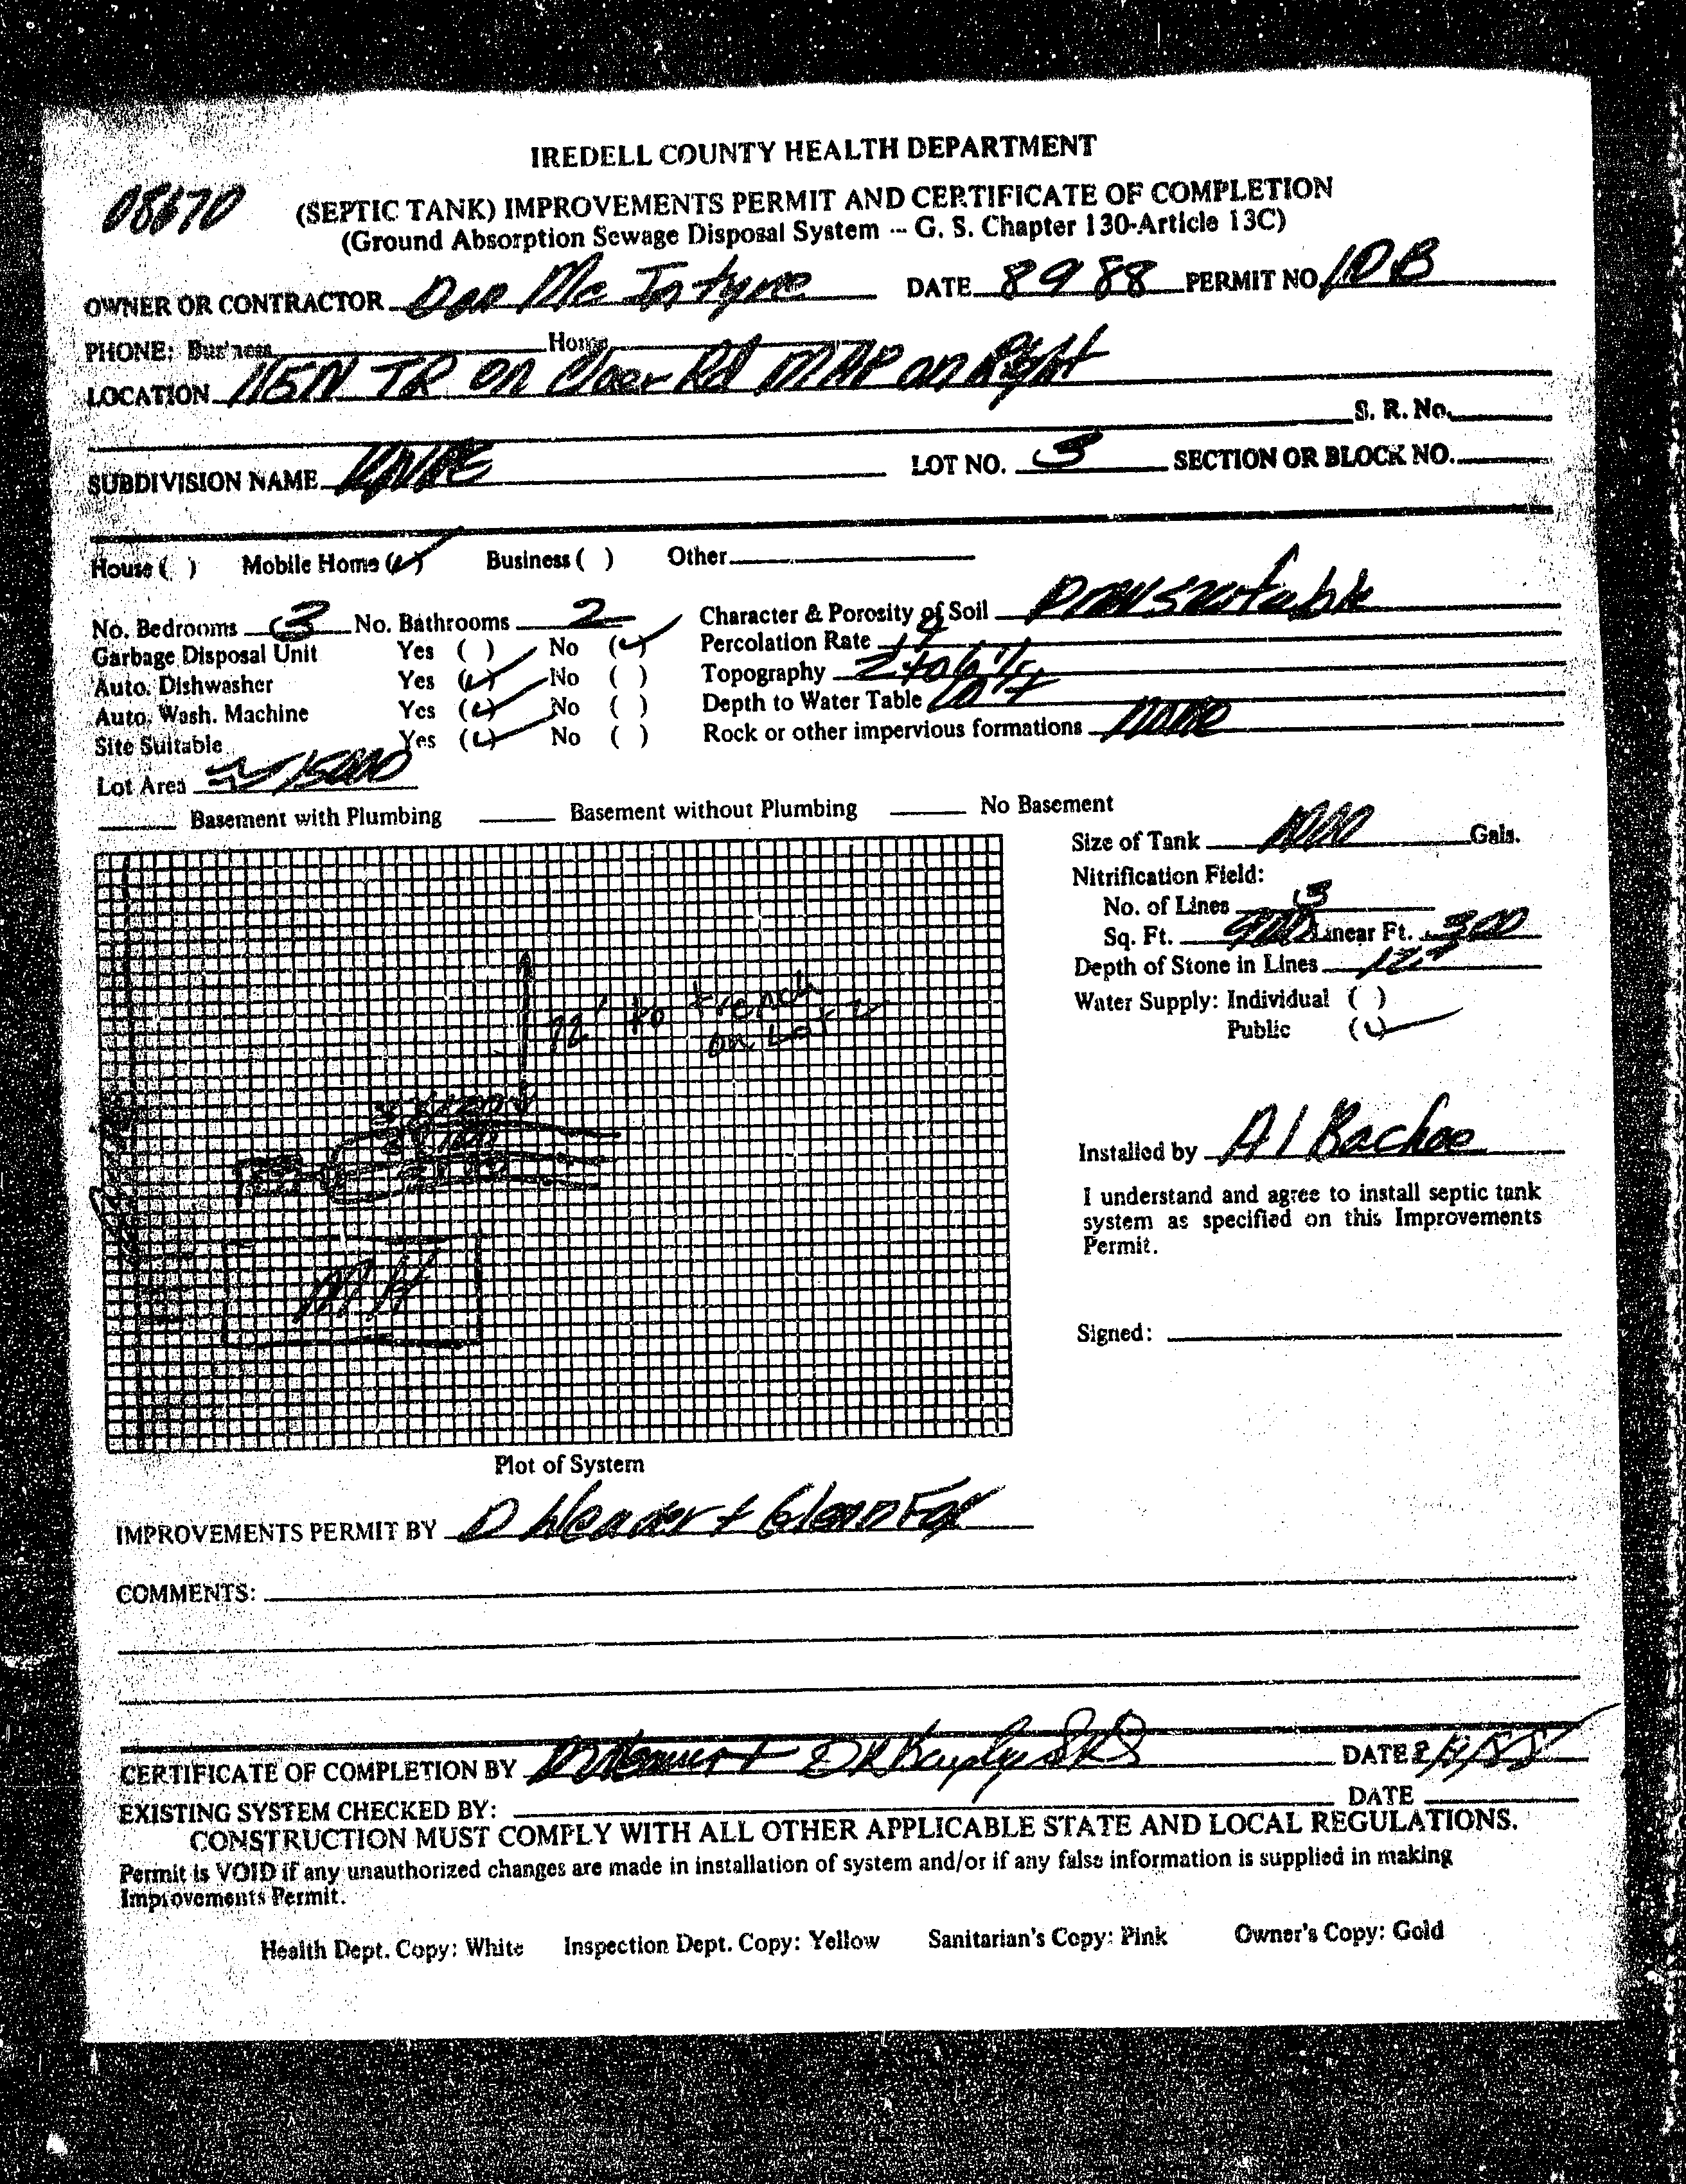 IREDELL COUNTY HEALTH DEPARTMENT
08670
(SEPTIC TANK) IMPROVEMENTS PERMIT AND CERTIFICATE OF COMPLETION
(Ground Absorption Sewage Disposal System -- G. S. Chapter 130-Article 13C)
OWNER OR CONTRACTOR Dan Mc Intyre DATE 8 9 88 PERMIT NO. 10B
PHONE: Business Home
LOCATION 115N TR on Rd on Right
S. R. No.
SUBDIVISION NAME LOT NO. 3 SECTION OR BLOCK NO.
House ( ) Mobile Home (✓) Business ( ) Other
No. Bedrooms 3 No. Bathrooms 2 Character & Porosity of Soil
Garbage Disposal Unit Yes ( ) No (✓) Percolation Rate
Auto. Dishwasher Yes (✓) No ( ) Topography 2 to 6%
Auto. Wash. Machine Yes (✓) No ( ) Depth to Water Table
Site Suitable Yes (✓) No ( ) Rock or other impervious formations none
Lot Area 15000
Basement with Plumbing Basement without Plumbing No Basement
Size of Tank 1000 Gals.
Nitrification Field:
No. of Lines 3
Sq. Ft. 900 Linear Ft. 300
Depth of Stone in Lines 12"
Water Supply: Individual ( )
Public (✓)
72' to trench
on Lot
MH
Installed by Al Bachoe
I understand and agree to install septic tank
system as specified on this Improvements
Permit.
Signed:
Plot of System
IMPROVEMENTS PERMIT BY D + Glenn Fox
COMMENTS:
CERTIFICATE OF COMPLETION BY DATE
EXISTING SYSTEM CHECKED BY: DATE
CONSTRUCTION MUST COMPLY WITH ALL OTHER APPLICABLE STATE AND LOCAL REGULATIONS.
Permit is VOID if any unauthorized changes are made in installation of system and/or if any false information is supplied in making
Improvements Permit.
Health Dept. Copy: White Inspection Dept. Copy: Yellow Sanitarian's Copy: Pink Owner's Copy: Gold